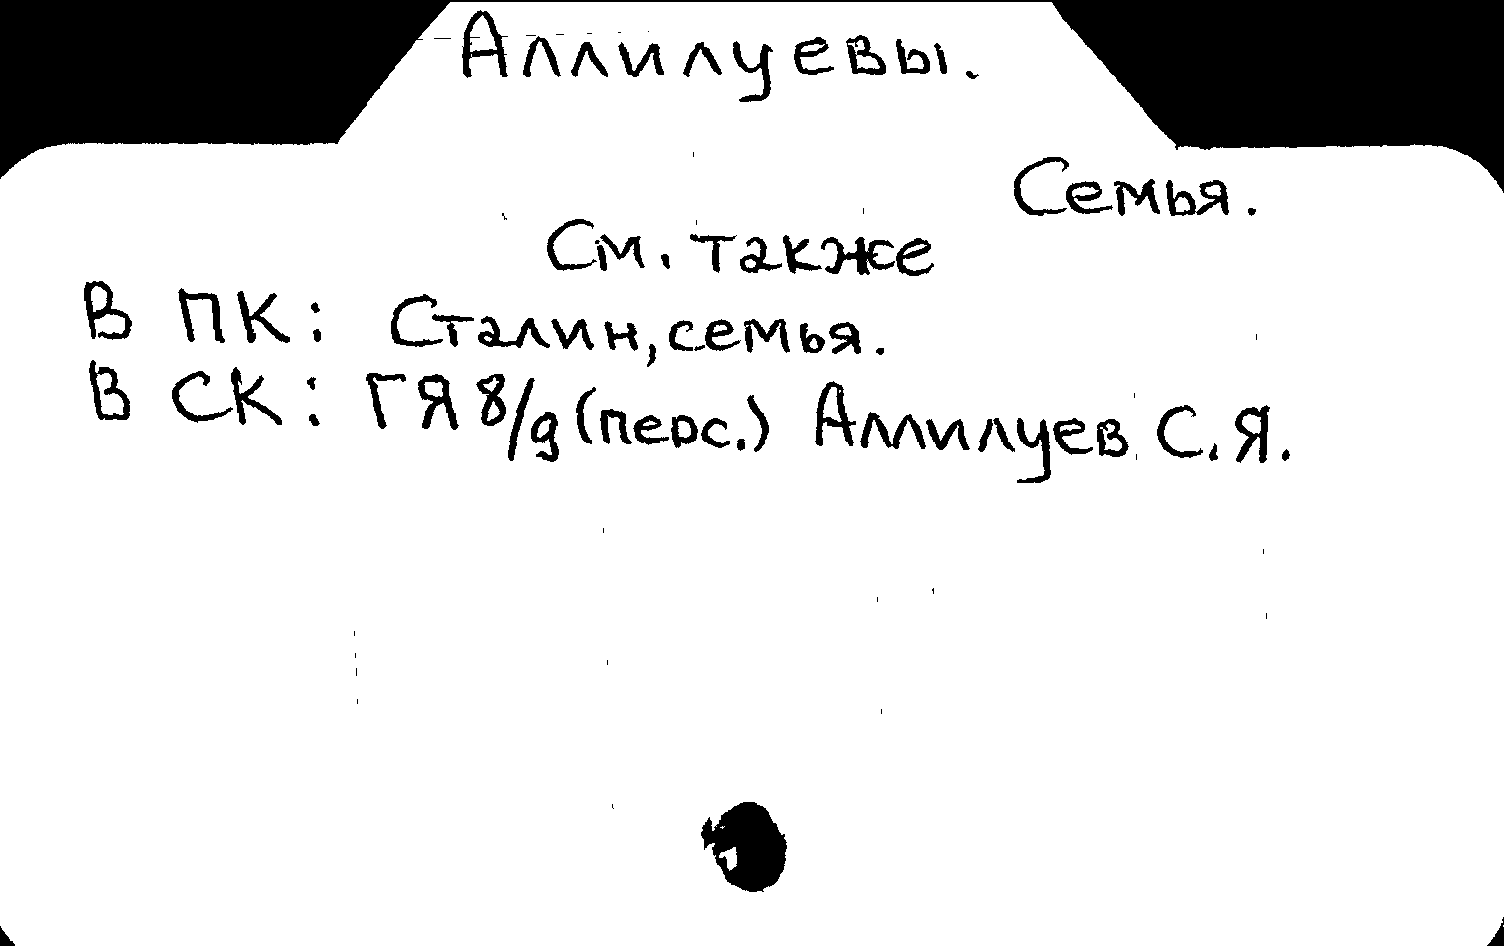 Аллилуевы.
Семья.
См. также
В ПК: Сталин, семья.
В СК: ГЯ 8/д (перс.) Аллилуев С.Я.